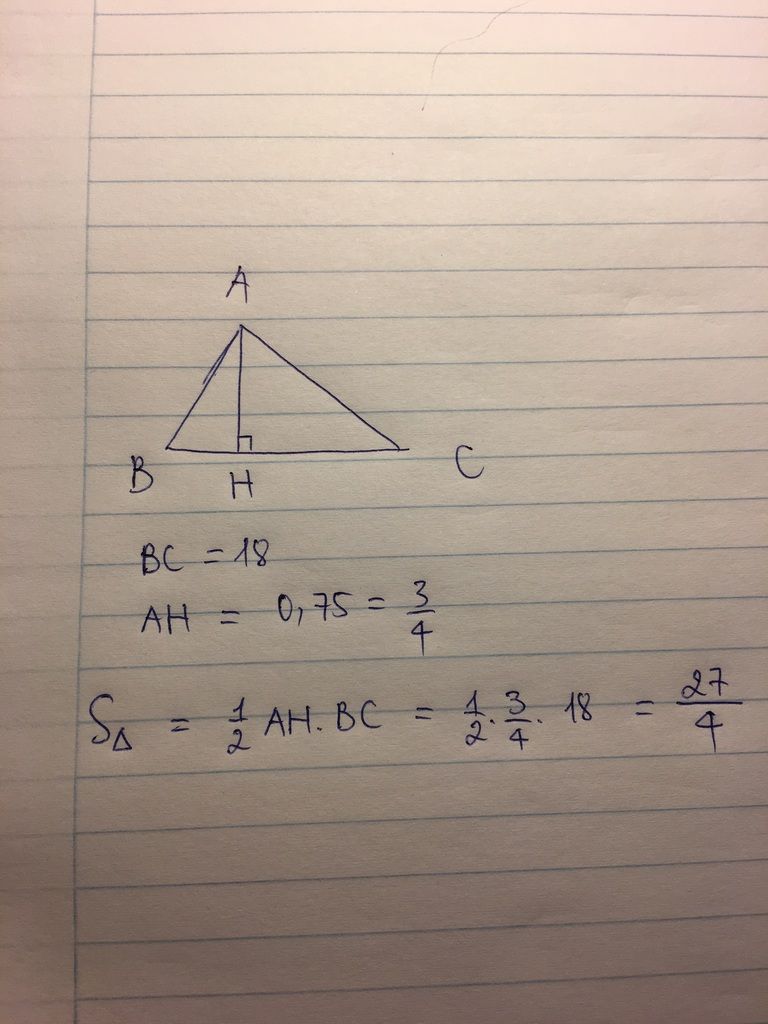 A
B H C
BC = 18
AH = 0,75 = 3/4
S∆ = 1/2 AH. BC = 1/2 . 3/4 . 18 = 27/4